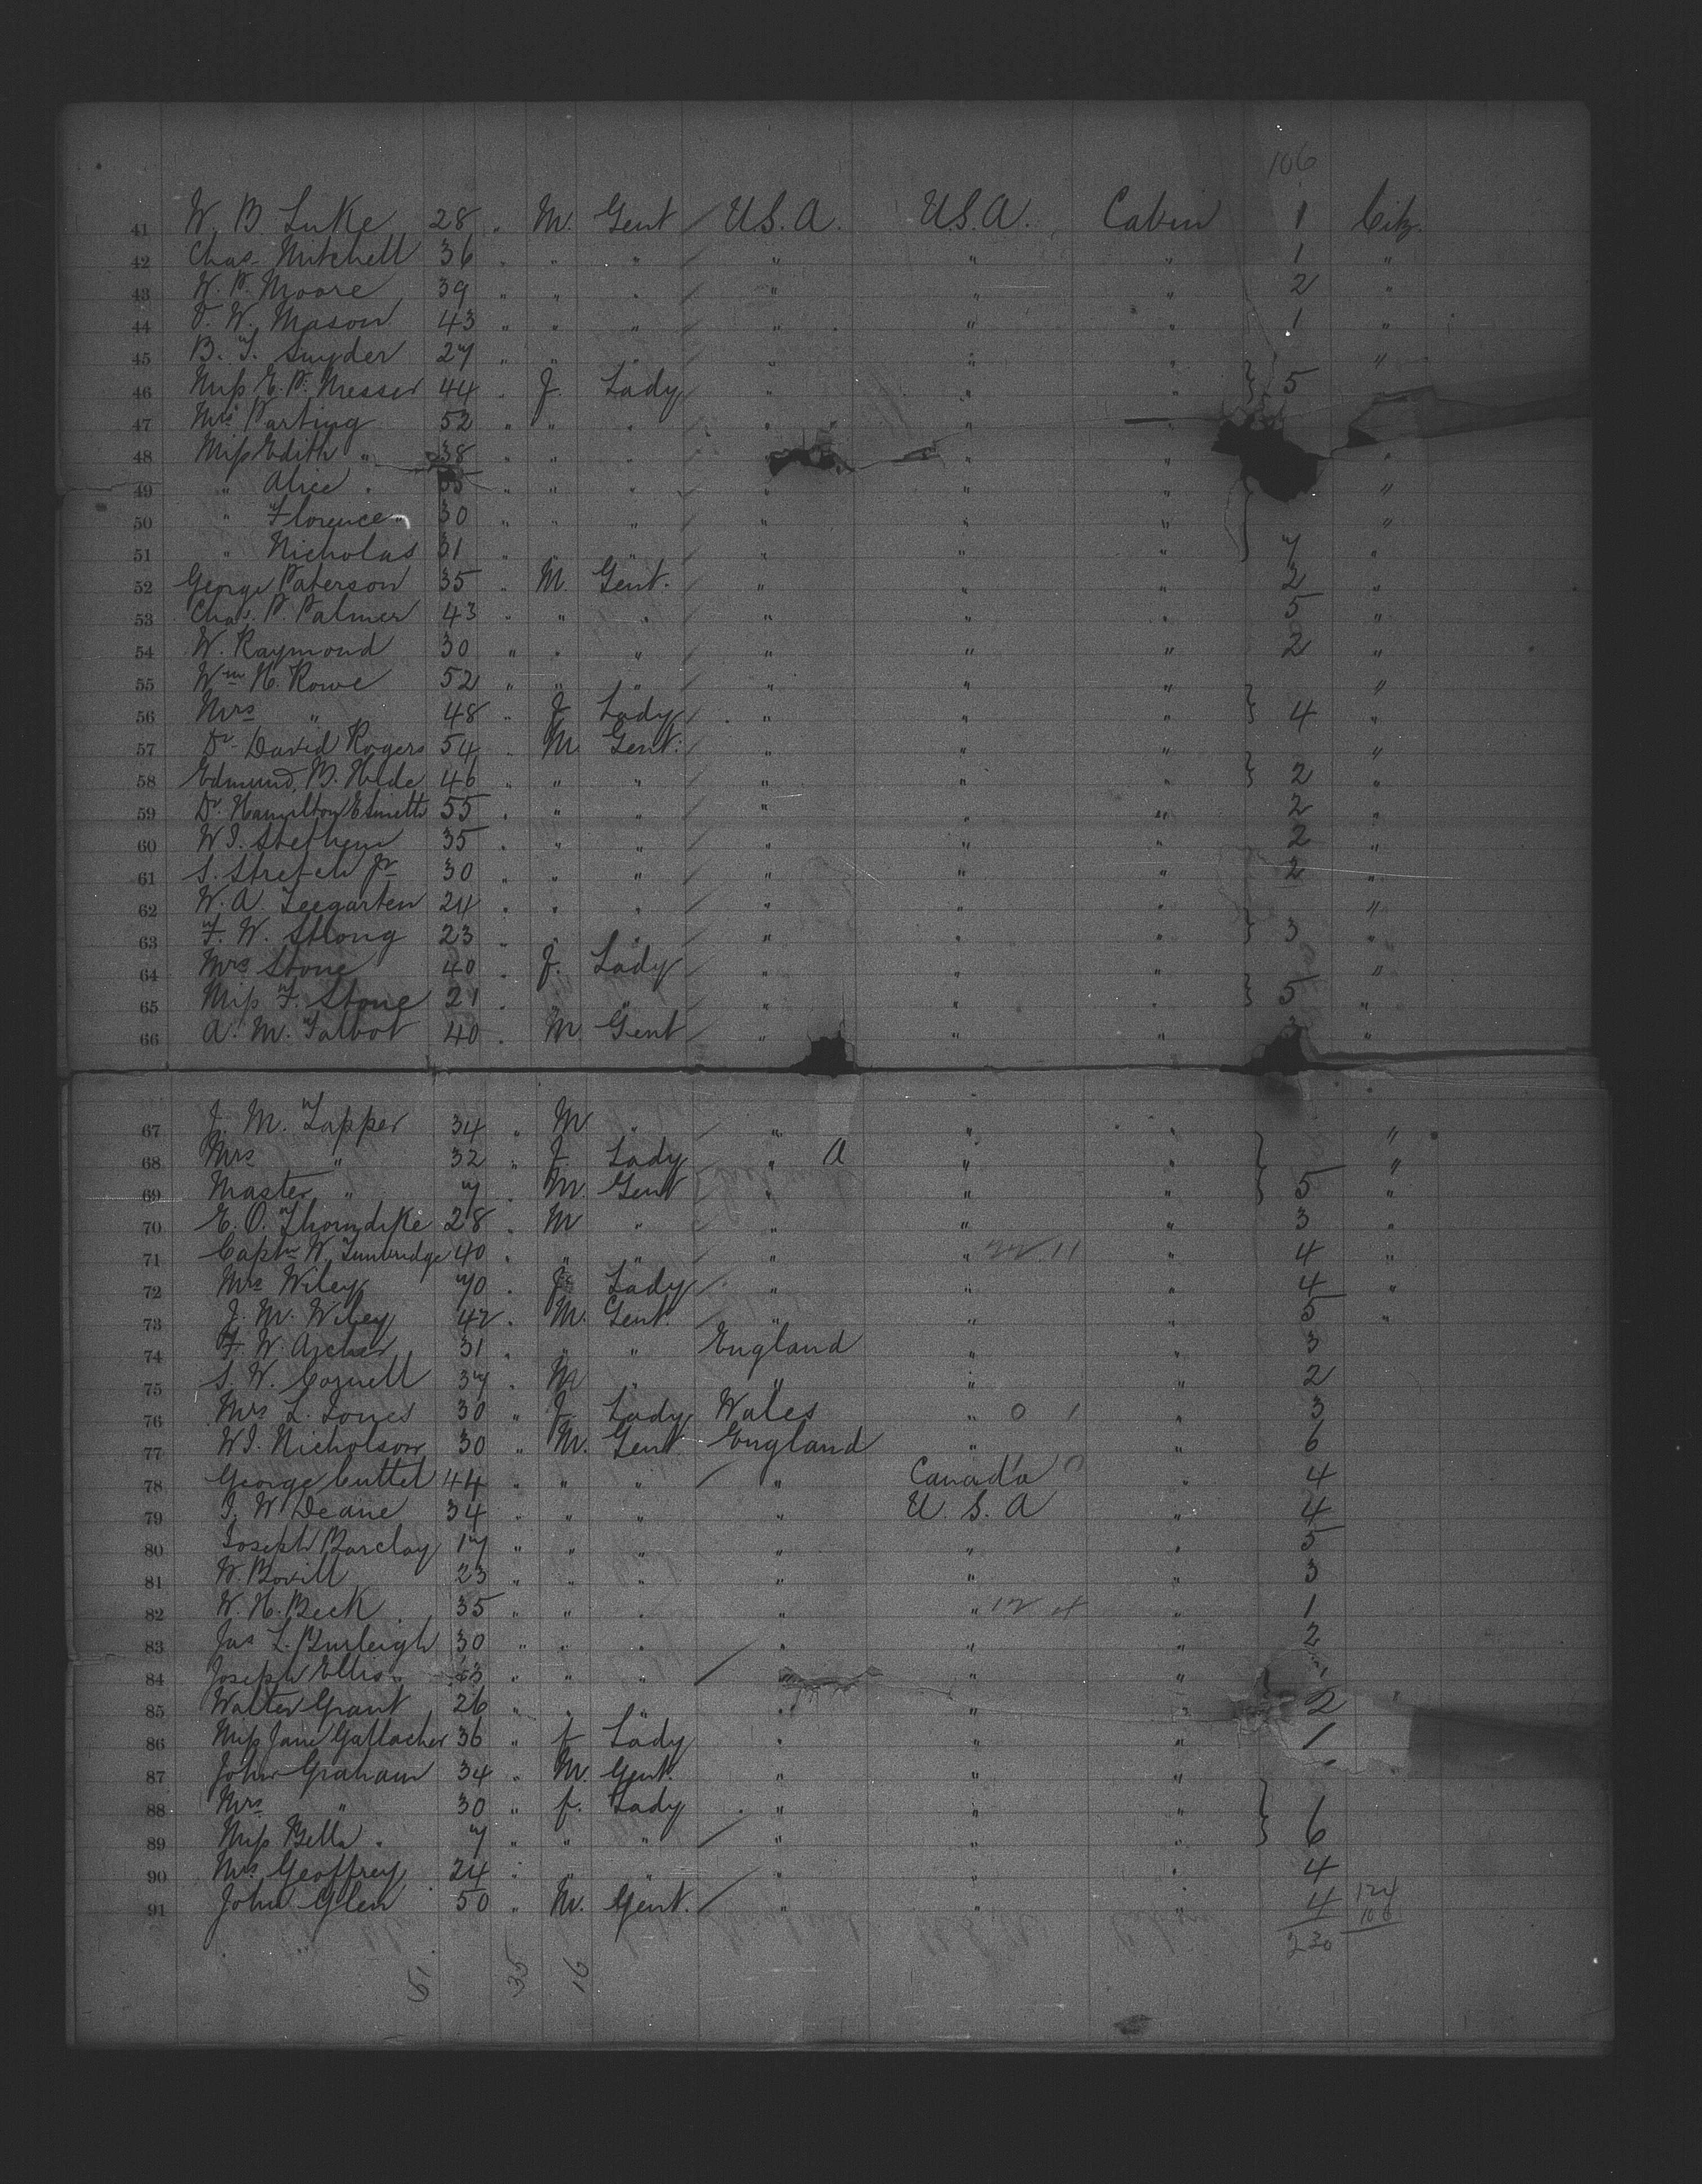 106
41 W. B Luke 28 " M. Gent / U.S.A. U.S.A. Cabin 1 Citz.
42 Chas. Mitchell 36 " " " / " " " 1 "
43 W. P. Moore 39 " " " / " " " 2 "
44 W. Mason 43 " " " / " " " 1 "
45 B. T. Snyder 27 " " " / " " " "
46 Miss E. P. Messer 44 " F. Lady " " " } 5
47 Mrs Parting 52 " " " " " "
48 Miss Edith " 38 " " " / " "
49 " Alice " " " " / " " " "
50 " Florence " 30 " " " / " " " "
51 " Nicholas 31 " " " / " " " } 7 "
52 George Paterson 35 " M. Gent. " " " 2 "
53 Chas. P. Palmer 43 " " " / " " " 5 "
54 W. Raymond 30 " " " / " " " 2 "
55 Wm H. Rowe 52 " " " / " " " "
56 Mrs " 48 " F Lady " " " } 4 "
57 Dr. David Rogers 54 " M Gent. " " " "
58 Edmund. B. 46 " " " / " " " } 2 "
59 Dr. Hamilton 55 " " " / " " " 2 "
60 35 " " " / " " " 2 "
61 S. Stretch Jr 30 " " " / " " " 2 "
62 W. A. Teegarten 24 " " " / " " " "
63 F. W. Strong 23 " " " / " " " } 3 "
64 Mrs Stone 40 " F. Lady / " " " "
65 Miss F. Stone 21 " " " / " " " } 5 "
66 A. M. Talbot 40 " M Gent / " " " "
67 J. M. Tapper 34 " M " / " " " "
68 Mrs " 32 " F. Lady " A " " "
69 Master " 7 " M. Gent " " " } 5 "
70 E. O. Thorndike 28 " M " / " " " 3 "
71 Captn W. Tunbridge 40 " " " / " " 11 " 4 "
72 Mrs Wiley 70 " F Lady / " " " 4 "
73 J. M. Wiley 42 " M. Gent. " " " 5 "
74 F. W. Archer 31 " " " England " " 3
75 S. W. Cornell 37 " M " " " " 2
76 Mrs L. Jones 30 " F. Lady Wales " 0 1 " 3
77 W. J. Nicholson 30 " M. Gent England " " 6
78 George Cuttel 44 " " " / " Canada " 4
79 J. W. Deane 34 " " " " U. S. A " 4
80 Joseph Barclay 17 " " " " " " 5
81 W. Bovill 23 " " " " " " 3
82 W. H. Beck 35 " " " " " 12 4 " 1
83 Jas L. Burleigh 30 " " " / " " " 2
84 Joseph Ellis " " " / " " "
85 Walter Grant 26 " " " " " " 2
86 Miss Jane Gallacher 36 " f Lady " " " 1
87 John Graham 34 " M. Gent. " " "
88 Mrs " 30 " f. Lady " " "
89 Miss Bella " 7 " " " / " " " } 6
90 Mrs Geoffrey 24 " " " / " " " 4
91 John Glen 50 " M. Gent. / " " " 4 124
106
230
51 35 16